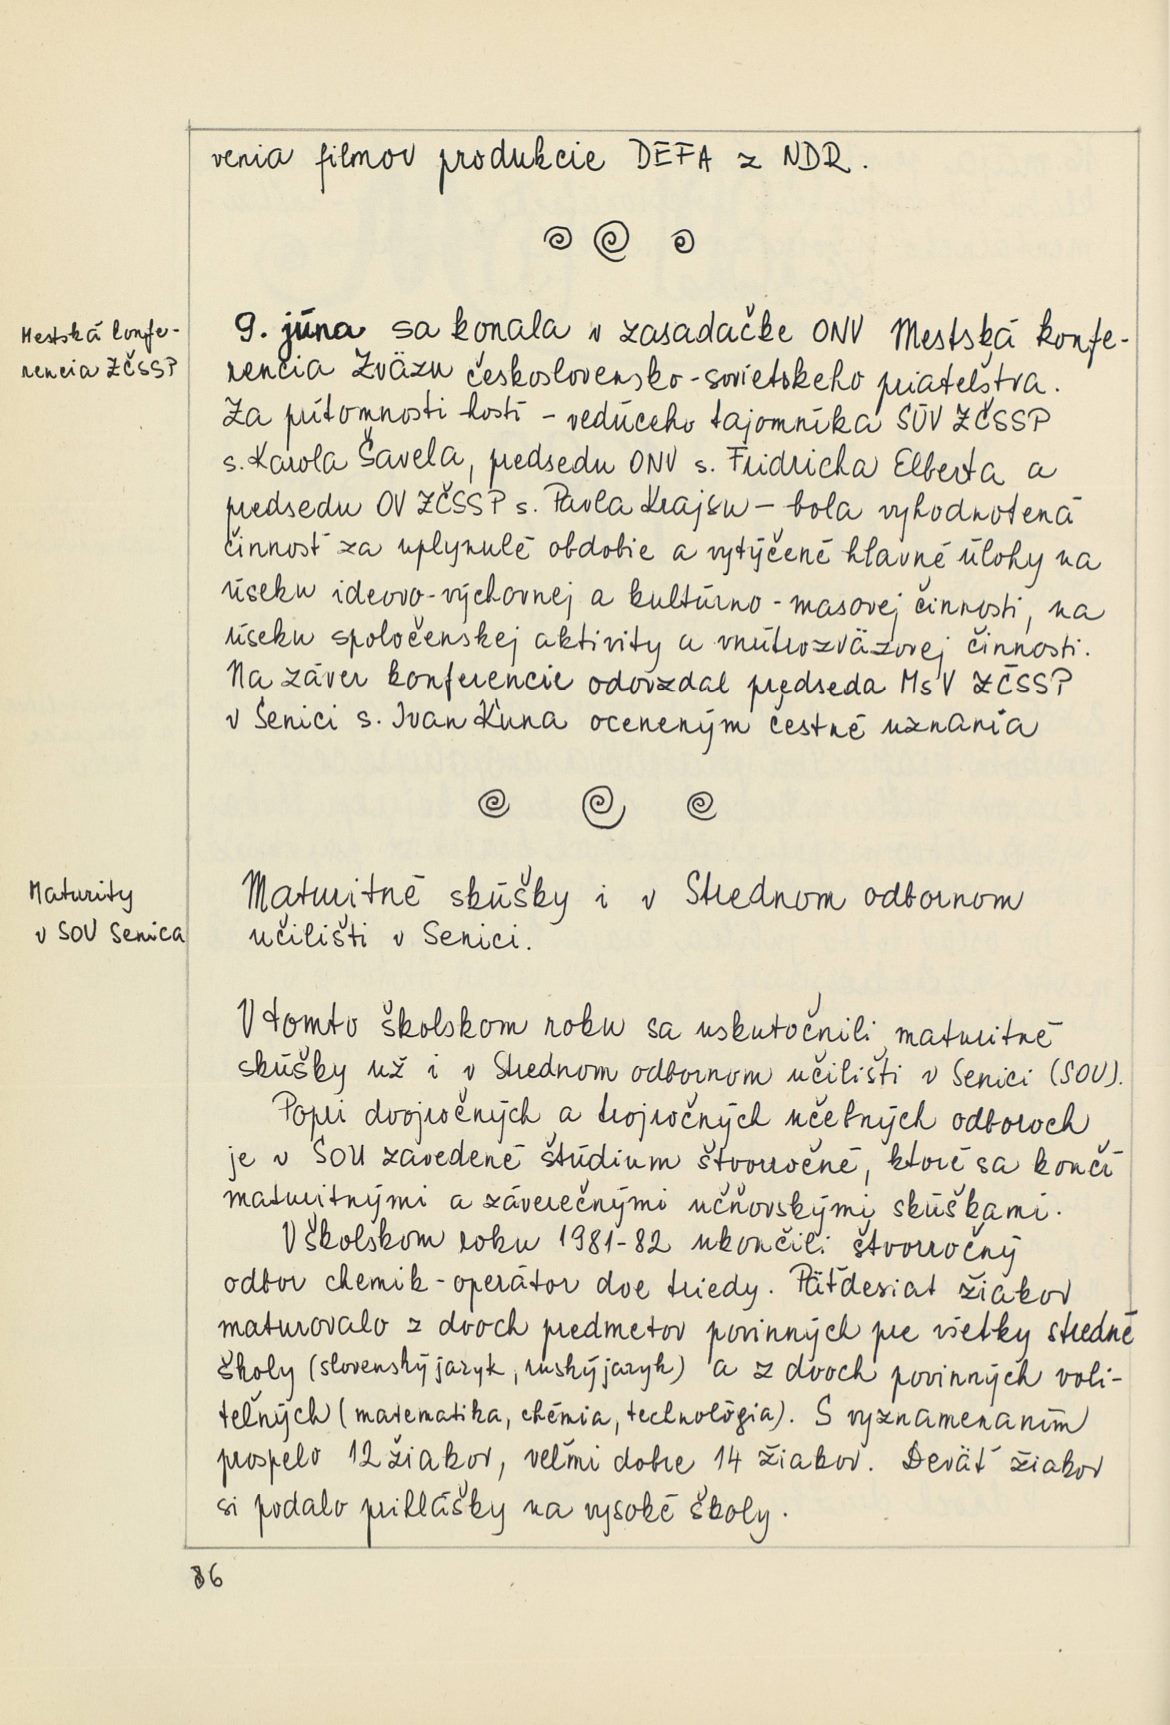 venia filmov produkcie DEFA z NDR.
Mestská konfe-
rencia ZČSSP
9. júna sa konala v zasadačke ONV Mestská konfe-
rencia Zväzu československo-sovietskeho priateľstva.
Za prítomnosti hostí - vedúceho tajomníka SÚV ZČSSP
s. Karola Šavela, predsedu ONV s. Fridricha Elberta a
predsedu OV ZČSSP s. Pavla Krajsu - bola vyhodnotená
činnosť za uplynulé obdobie a vytýčené hlavné úlohy na
úseku ideovo-výchovnej a kultúrno-masovej činnosti, na
úseku spoločenskej aktivity a vnútrozväzovej činnosti.
Na záver konferencie odovzdal predseda MsV ZČSSP
v Senici s. Ivan Kuna oceneným čestné uznania
Maturity
v SOU Senica
Maturitné skúšky i v Strednom odbornom
učilišti v Senici.
V tomto školskom roku sa uskutočnili maturitné
skúšky už i v Strednom odbornom učilišti v Senici (SOU).
Popri dvojročných a trojročných učebných odboroch
je v SOU zavedené štúdium štvorročné, ktoré sa končí
maturitnými a záverečnými učňovskými skúškami.
V školskom roku 1981-82 ukončili štvorročný
odbor chemik-operátor dve triedy. Päťdesiat žiakov
maturovalo z dvoch predmetov povinných pre všetky stredné
školy (slovenský jazyk, ruský jazyk) a z dvoch povinných voli-
teľných (matematika, chémia, technológia). S vyznamenaním
prospelo 12 žiakov, veľmi dobre 14 žiakov. Deväť žiakov
si podalo prihlášky na vysoké školy.
86